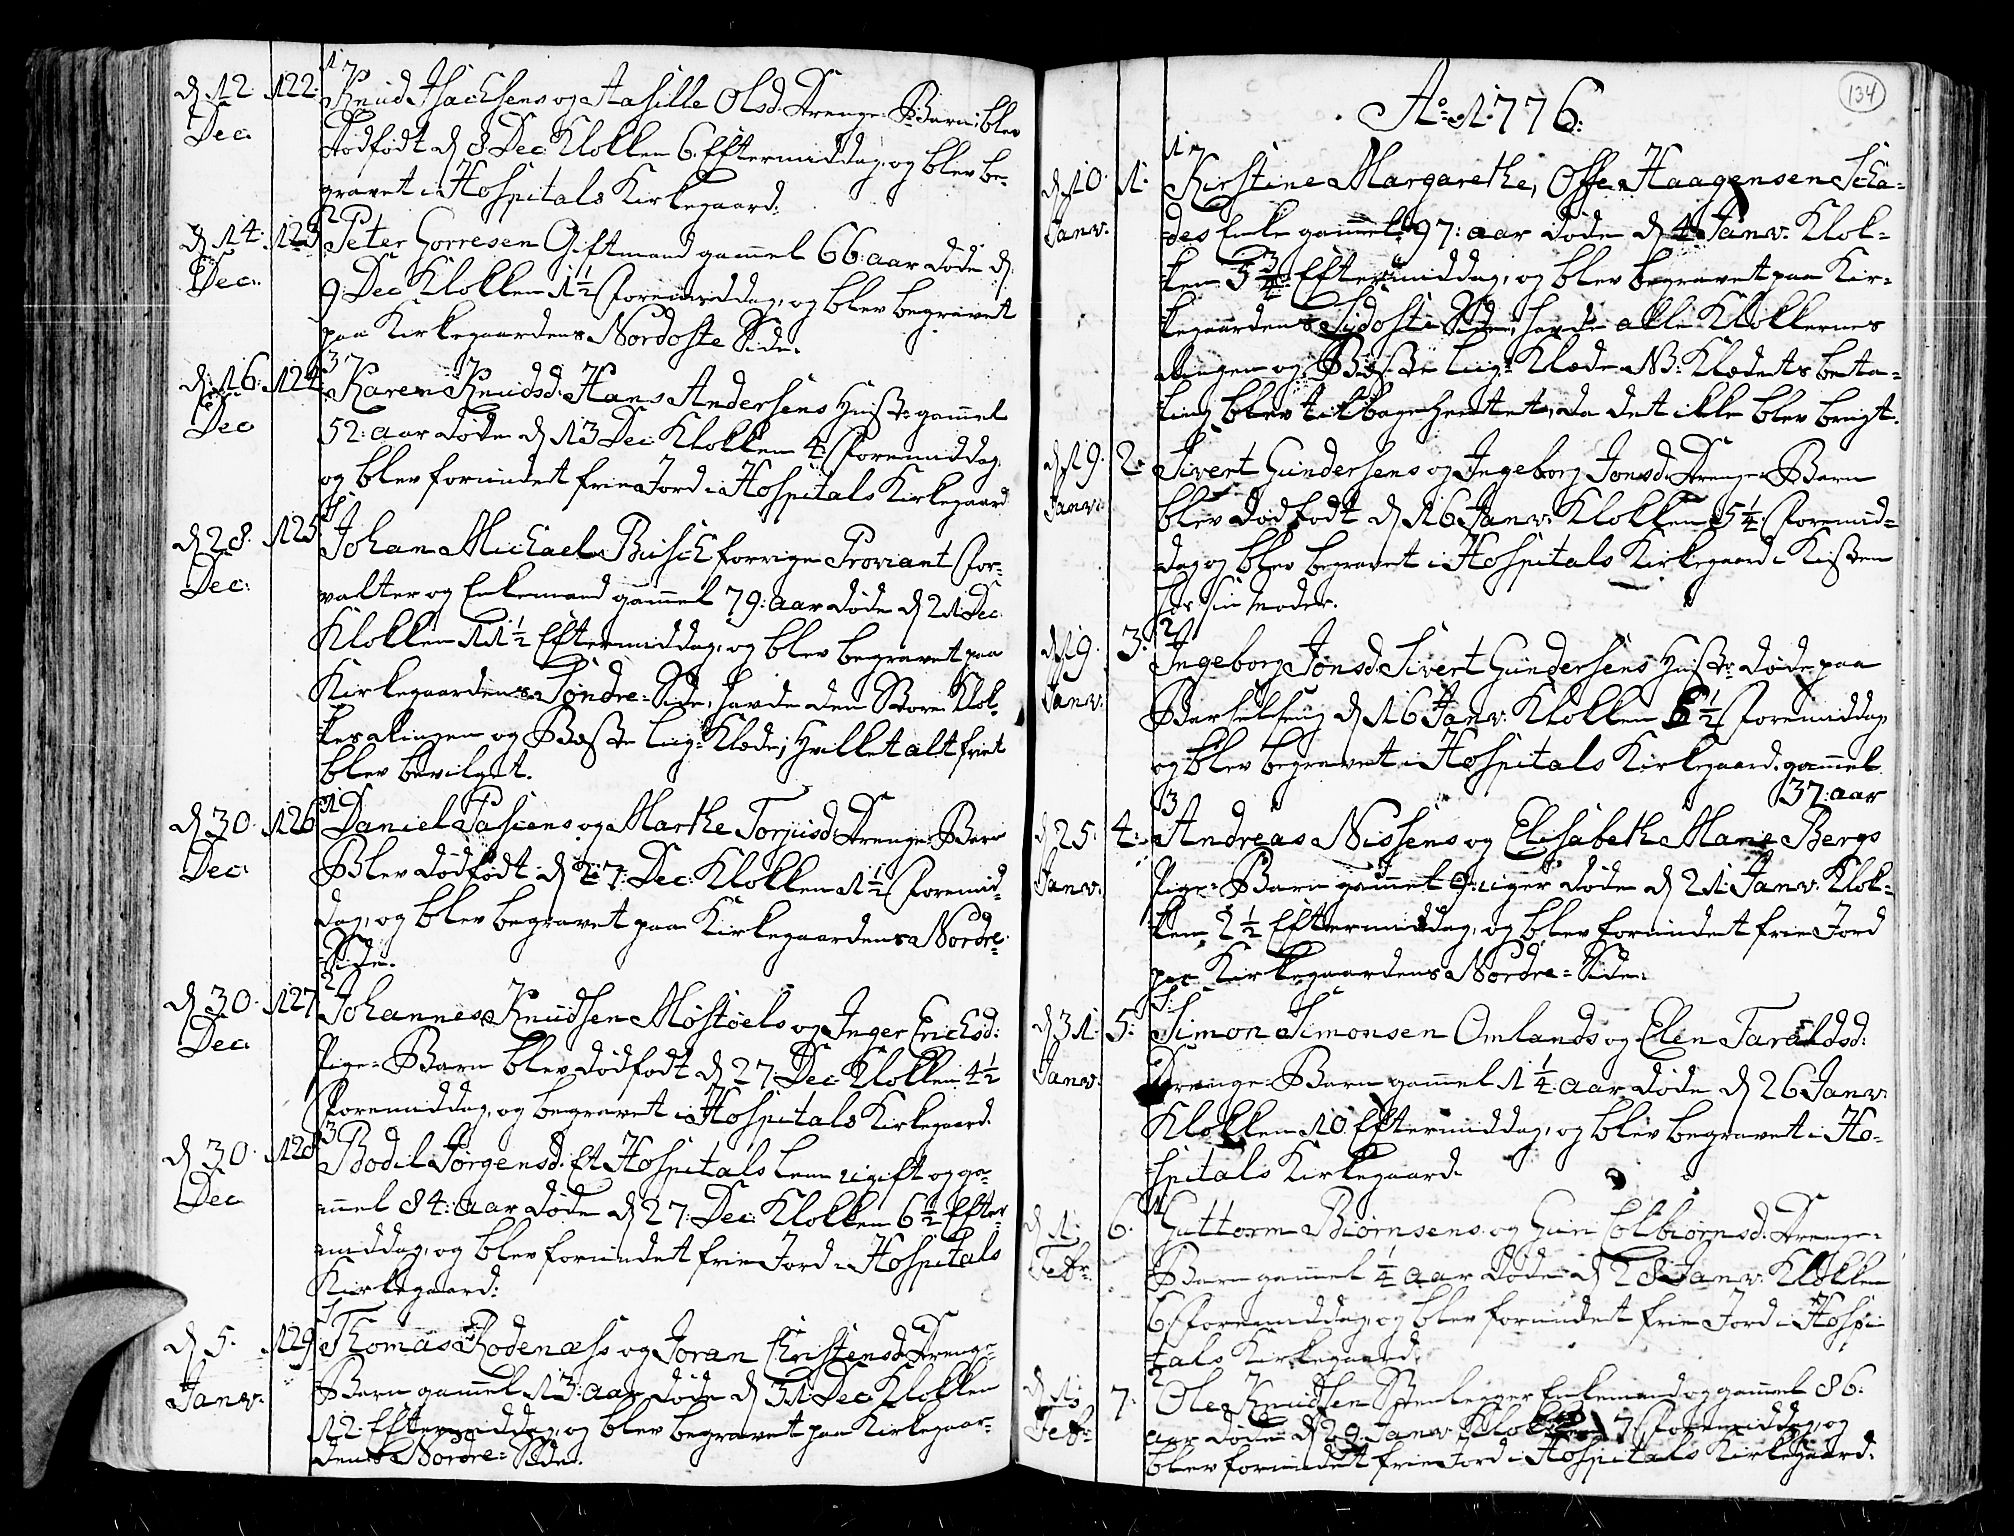 d. 12. 122. 1
Dec. Knud Isachsens og Aasille Olsd. Drenge-Barn; blev
dødfødt d. 8 Dec. Klokken 6. Eftermiddag, og blev be-
gravet i Hospitals Kirkegaard.
d. 14. 123. 2
Dec. Peter Gorresen Giftmand gammel 66: aar døde d.
9 Dec. Klokken 1 1/2 Foremiddag, og blev begravet
paa Kirkegaardens Nordoste Side.
d. 16. 124. 3
Dec. Karen Knudsd. Hans Andersens Hustr. gammel
52: aar døde d. 13 Dec. Klokken 4: Foremiddag,
og blev forundet frie Jord i Hospitals Kirkegaard
d. 28. 125.
Dec. Johan Michael Busch forrige Proviant For-
valter og Enkemand gammel 79: aar døde d. 21 Dec.
Klokken 11 1/2 Eftermiddag, og blev begravet paa
Kirkegaardens Søndre-Side, havde den Store Klok-
kes Ringen og Beste Liig-Klæde; Hvilket alt friet
blev bevilget.
d. 30. 126. 1
Dec. Daniel Tasiens og Marthe Torjusd. Drenge-Barn
Blev dødfødt d. 27: Dec: Klokken 1 1/2 Foremid-
dag, og blev begravet paa Kirkegaardens Nordre-
Side.
d. 30. 127. 2
Dec. Johannes Knudsen Møstøels og Inger Erichsd:
Pige-Barn blev dødfødt d. 27: Dec: Klokken 4 1/2
Foremiddag, og begravet i Hospitals Kirkegaard.
d. 30. 128. 3
Dec. Bodil Jørgensd. Et Hospitals Lem ugift og ga-
mmel 84: aar døde d. 27: Dec: Klokken 6 1/2 Efter-
middag, og blev forundet frie Jord i Hospitals
Kirkegaard:
d. 5. 129.
Janv: Thomas Rodenæss og Joran Christensd. Drenge-
Barn gammel 13: aar døde d. 31 Dec. Klokken
12: Eftermiddag, og blev begravet paa Kirkegaar-
dens Nordre-Side.
134
Ao. 1776.
d. 10. 1. 1
Janv: Kirstine Margarethe, Offe Haagensen Scha-
des Enke gammel 97: aar døde d. 4 Janv: Klok-
ken 3 3/4 Eftermiddag, og blev begravet paa Kir-
kegaardens Sydoste Side, havde alle Klokkernes
Ringen og Beste Liig-Klæde NB: Klædets beta-
ling blev tilbage hentet, da det ikke blev brugt.
d. 19. 2.
Janv: Sivert Gundersens og Ingeborg Jonsd. Drenge-Barn
blev dødfødt d. 16 Janv: Klokken 5 1/4 Foremid-
dag og blev begravet i Hospitals Kirkegaard i Kisten
hos sin Moder.
d. 19. 3. 2
Janv: Ingeborg Jonsd. Sivert Gundersens Hustr. døde paa
Barselseng d. 16 Janv: Klokken 6 1/2 Foremiddag
og blev begravet i Hospitals Kirkegaard. gammel
37: aar
d. 25. 4. 3
Janv: Andreas Nissens og Elisabeth Marie Bergs
Pige-Barn gammel 9: uger døde d. 21: Janv: Klok-
ken 2 1/2 Eftermiddag, og blev forundet frie Jord
paa Kirkegaardens Nordre-Side.
d. 31. 5.
Janv: Simon Simonsen Omlands og Elen Taraldsd.
Drenge-Barn gammel 1 1/4: aar døde d. 26 Janv:
Klokken 10 Eftermiddag, og blev begravet i Ho-
spitals Kirkegaard.
d. 1. 6. 1
Febr: Guttorm Biørnsens og Guri Colbiørnsd. Drenge-
Barn gammel 1/4 aar døde d. 28 Janv: Klokken
6 Foremiddag, og blev forundet frie Jord i Hospi-
tals Kirkegaard.
d. 1. 7. 2
Febr: Ole Knudsen Steenlegger Enkemand og gammel 86:
aar døde d. 29: Janv: Klokken 7 Foremiddag, og
blev forundet frie Jord i Hospitals Kirkegaard.